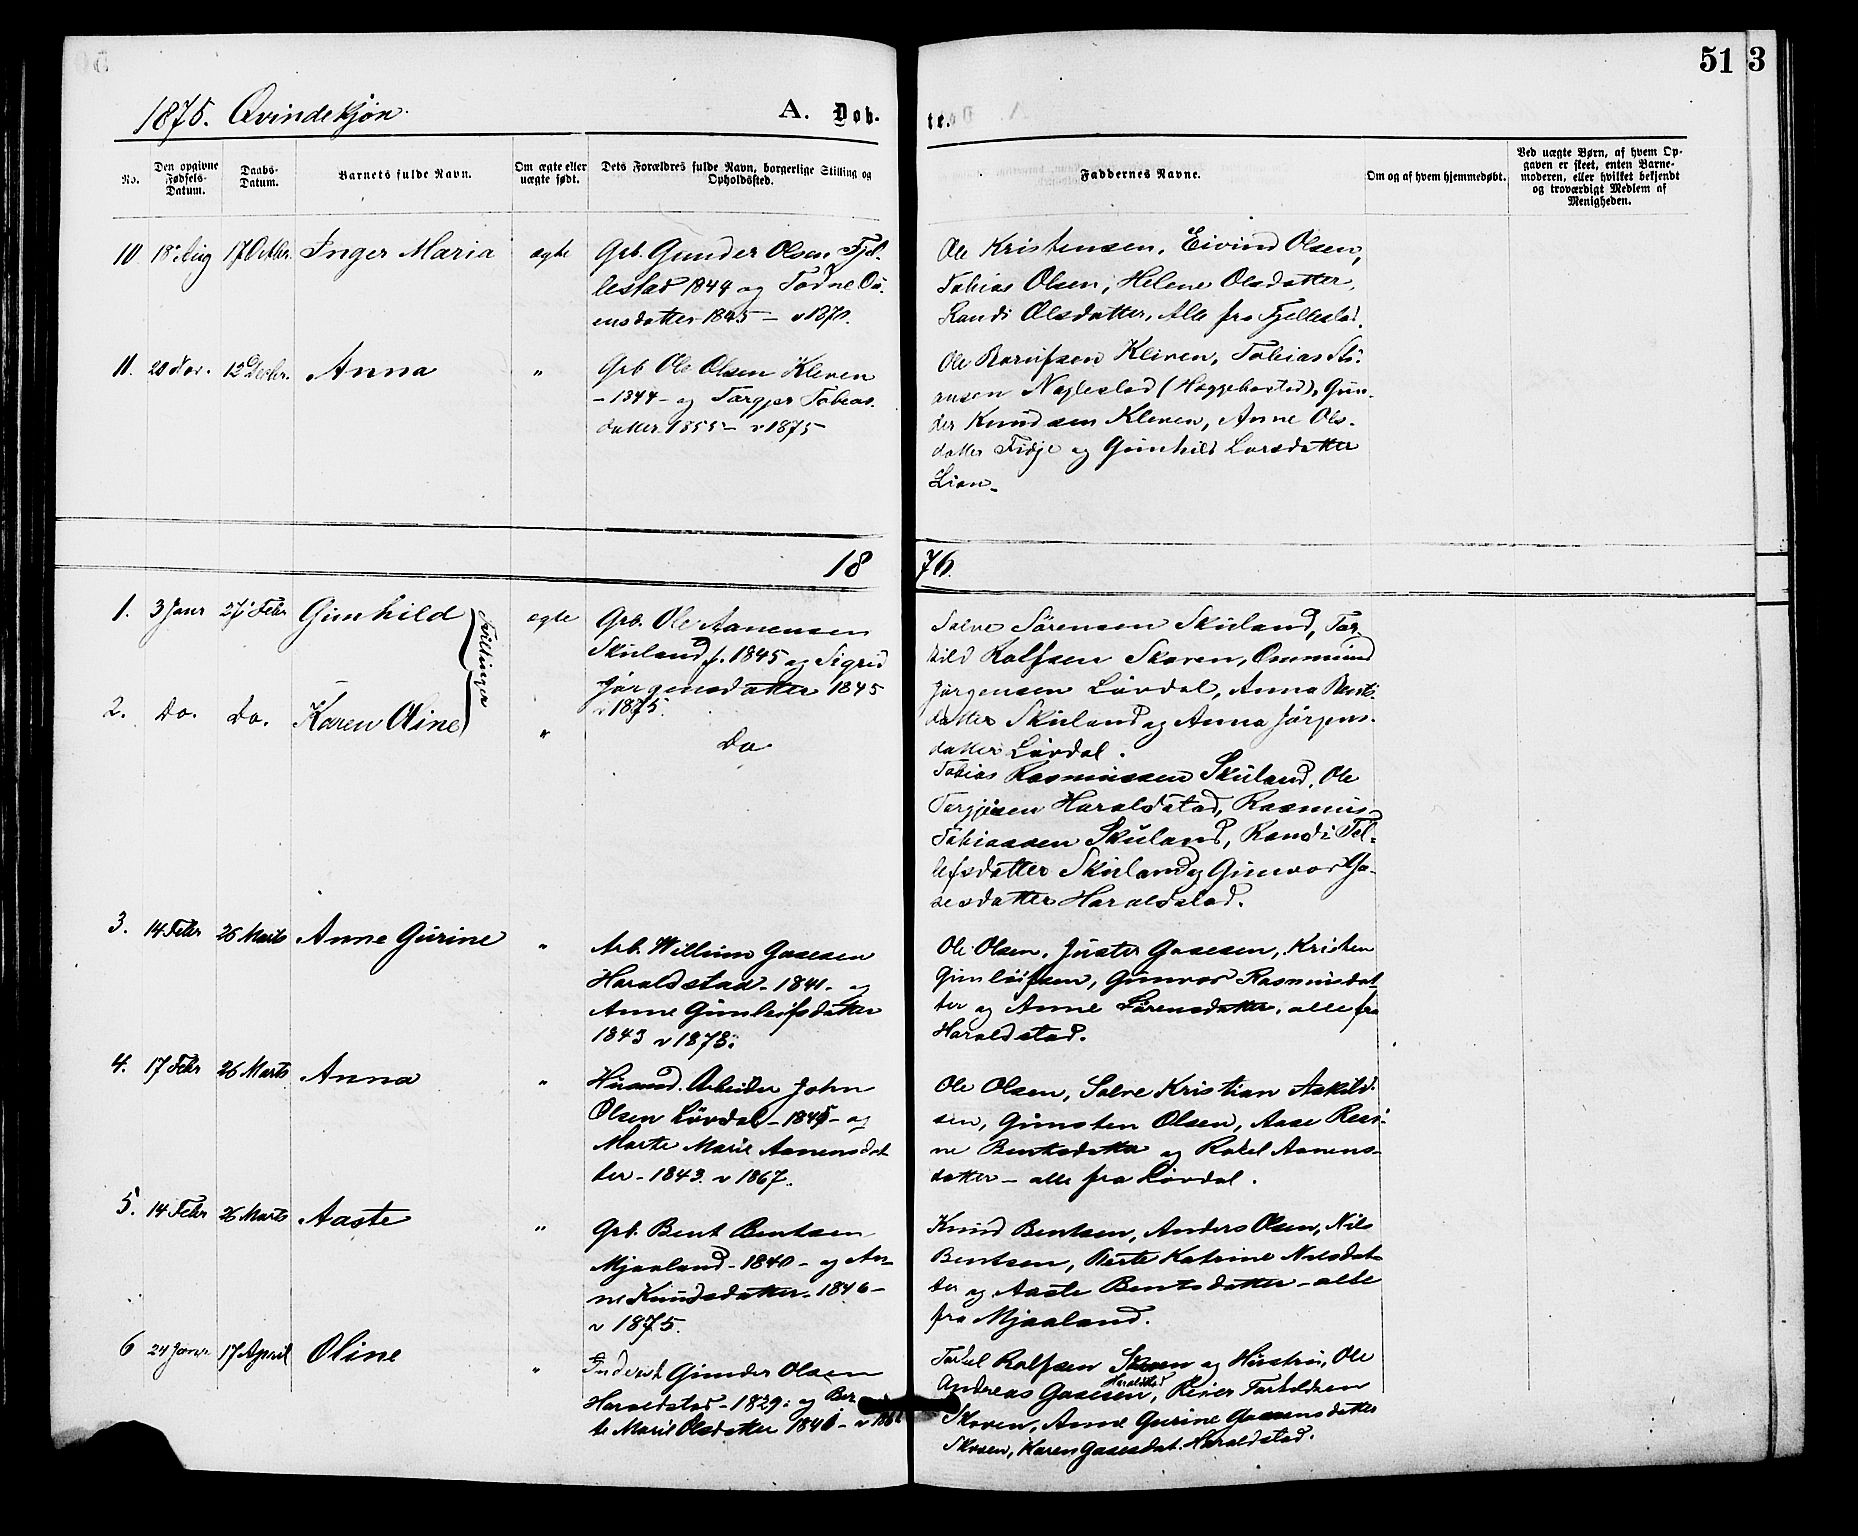 51 3
1875. Qvindekjøn.
A. Døb-
te.
No.
Den opgivne Fødsels-Datum.
Daabs-Datum.
Barnets fulde Navn.
Om ægte eller uægte født.
Dets Forældres fulde Navn, borgerlige Stilling og Opholdssted.
Faddernes Navne.
Om og af hvem hjemmedøbt.
Ved uægte Børn, af hvem Opgaven er skeet, enten Barnemoderen, eller hvilket bekjendt og troværdigt Medlem af Menigheden.
10 18 Aug 17 Octbr. Inger Maria ægte
Grb. Gunder Olsen Fjel-
lestad 1844 og Todne Os-
ensdatter 1845 – v 1870.
Ole Kristensen, Eivind Olsen,
Tobias Olsen, Helene Olsdatter,
Randi Olsdatter, Alle fra Fjellestad.
11. 20 Nov. 12 Decbr. Anna "
Grb Ole Olsen Kleven
– 1844 – og Torgjer Tobias-
datter 1855 – v 1875
Ole Kleven, Tobias
ansen (Hæggebostad), Gun-
der Knudsen Kleven, Anne Ols-
datter Fidje og Gunhild Larsdatter
Lian.
18 76.
1. 3 Janr 27 Febr Gunhild ægte
Tvillinger
Grb. Ole Aanensen
Skuland f. 1845 og Sigrid
Jørgensdatter 1845
v 1875.
Salve Sørensen Skuland, Tar-
kild Rolfsen Skoven, Ommund
Jørgensen Løvdal, Anna Bent-
datter Skuland og Anna Jørgens-
datter Løvdal.
2. Do. Do. Karen Oline "
Do
Tobias Rasmussen Skuland, Ole
Torgjusen Haraldstad, Rasmus
Tobiassen Skuland, Randi Tel-
lefsdatter Skuland og Gunvor Ga-
sesdatter Haraldstad.
3. 14 Febr 26 Marts Anne Gurine "
Arb. Willum Gasesen
Haraldstad – 1841 – og
Anne Gunleifsdatter
1843 v 1873.
Ole Olsen, Gasesen, Kristen
Gunleifsen, Gunvor Rasmusdat-
ter og Anne Sørensdatter, alle fra
Haraldstad.
4. 17 Febr 26 Marts Anna "
Husmd. Arbeider John
Olsen Løvdal – 1845 – og
Marte Marie Aanensdat-
ter – 1843. v 1867.
Ole Olsen, Salve Kristian Askild-
sen, Gunsten Olsen, Aase Resi-
ne Bentsdatter og Rakel Aanens-
datter – alle fra Løvdal.
5. 14 Febr 26 Marts Aaste "
Grb. Bent Bentsen
Mjaaland – 1840 – og An-
ne Knudsdatter – 1846 –
v 1875.
Knud Bentsen, Anders Olsen, Nils
Bentsen, Berte Katrine Nilsdat-
ter og Aaste Bentsdatter – alle
fra Mjaaland.
6 24 Janr 17 April Oline "
Inderst Gunder Olsen
Haraldstad – 1829 og Ber-
te Marie Olsdatter 184
Tarkel Rolfsen Skoven og Hustru, Ole
Andreas Gasesen Haraldstad, Reier Tarkildsen
Skoven, Anne Gurine Gasesdatter
Skoven, Karen Gasesdat. Haraldstad.